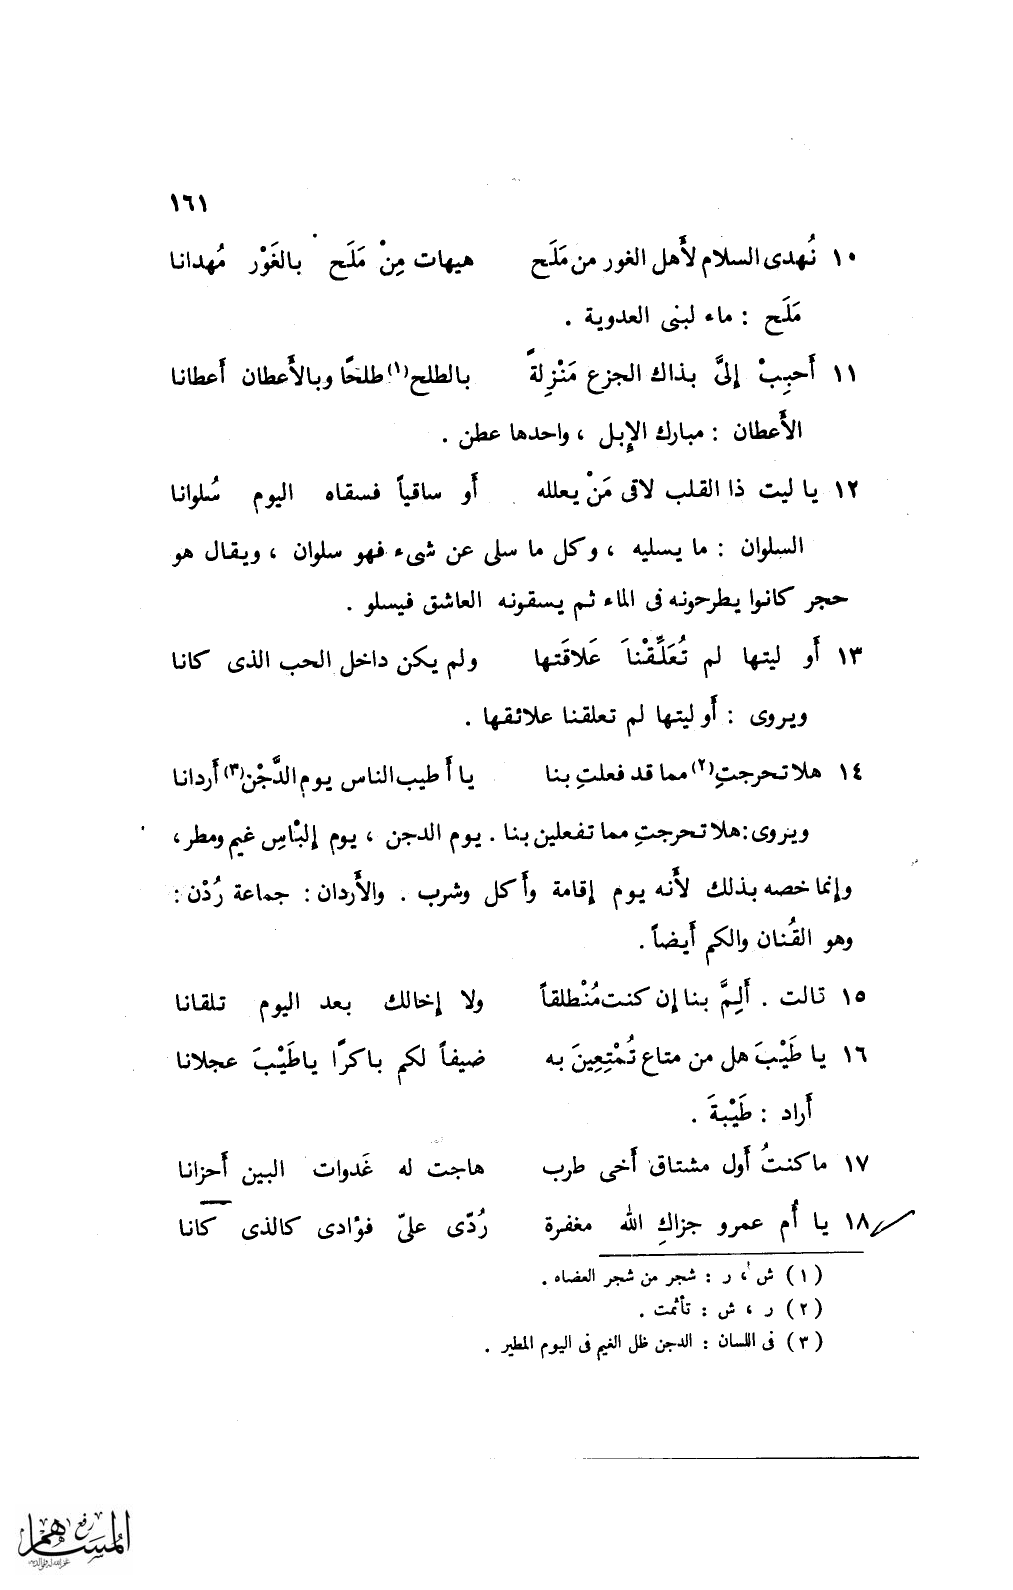 ١٦١
١٠ نُهدى السلام لأَهل الغور من مَلَح هيهات مِنْ مَلَح بالغَوْر مُهدانا
مَلَح : ماء لبنى العدوية .
١١ أَحبِبْ إلىَّ بذاك الجزع مَنْزِلةً بالطلح(١) طلحًا وبالأَعطان أَعطانا
الأَعطان : مبارك الإبل ، واحدها عطن .
١٢ يا ليت ذا القلب لاقى مَنْ يعلله أَو ساقياً فسقاه اليوم سُلوانا
السلوان : ما يسليه ، وكل ما سلى عن شىء فهو سلوان ، ويقال هو
حجر كانوا يطرحونه فى الماء ثم يسقونه العاشق فيسلو .
١٣ أَو ليتها لم تُعَلِّقْناَ عَلاقَتها ولم يكن داخل الحب الذى كانا
ويروى : أَو ليتها لم تعلقنا علائقها .
١٤ هلا تحرجتِ(٢) مما قد فعلتِ بنا يا أَطيب الناس يوم الدَّجْن(٣) أَردانا
ويروى: هلا تحرجتِ مما تفعلين بنا . يوم الدجن ، يوم إلبْاسِ غيم ومطر ،
وإنما خصه بذلك لأَنه يوم إقامة وأَكل وشرب . والأَردان : جماعة رُدْن :
وهو القُنان والكم أَيضاً .
١٥ قالت . أَلِمَّ بنا إن كنت مُنْطلقاً ولا إخالك بعد اليوم تلقانا
١٦ يا طَيْبَ هل من متاع تُمْتِعِينَ به ضيفاً لكم باكرًا يا طَيْبَ عجلانا
أَراد : طَيْبةَ .
١٧ ما كنتُ أَول مشتاق أَخى طرب هاجت له غَدوات البين أَحزانا
١٨ يا أُم عمرو جزاكِ الله مغفرة رُدّى علىّ فؤادى كالذى كانا
(١) ش ، ر : شجر من شجر العضاه .
(٢) ر ، ش : تأثمت .
(٣) فى اللسان : الدجن ظل الغيم فى اليوم المطير .